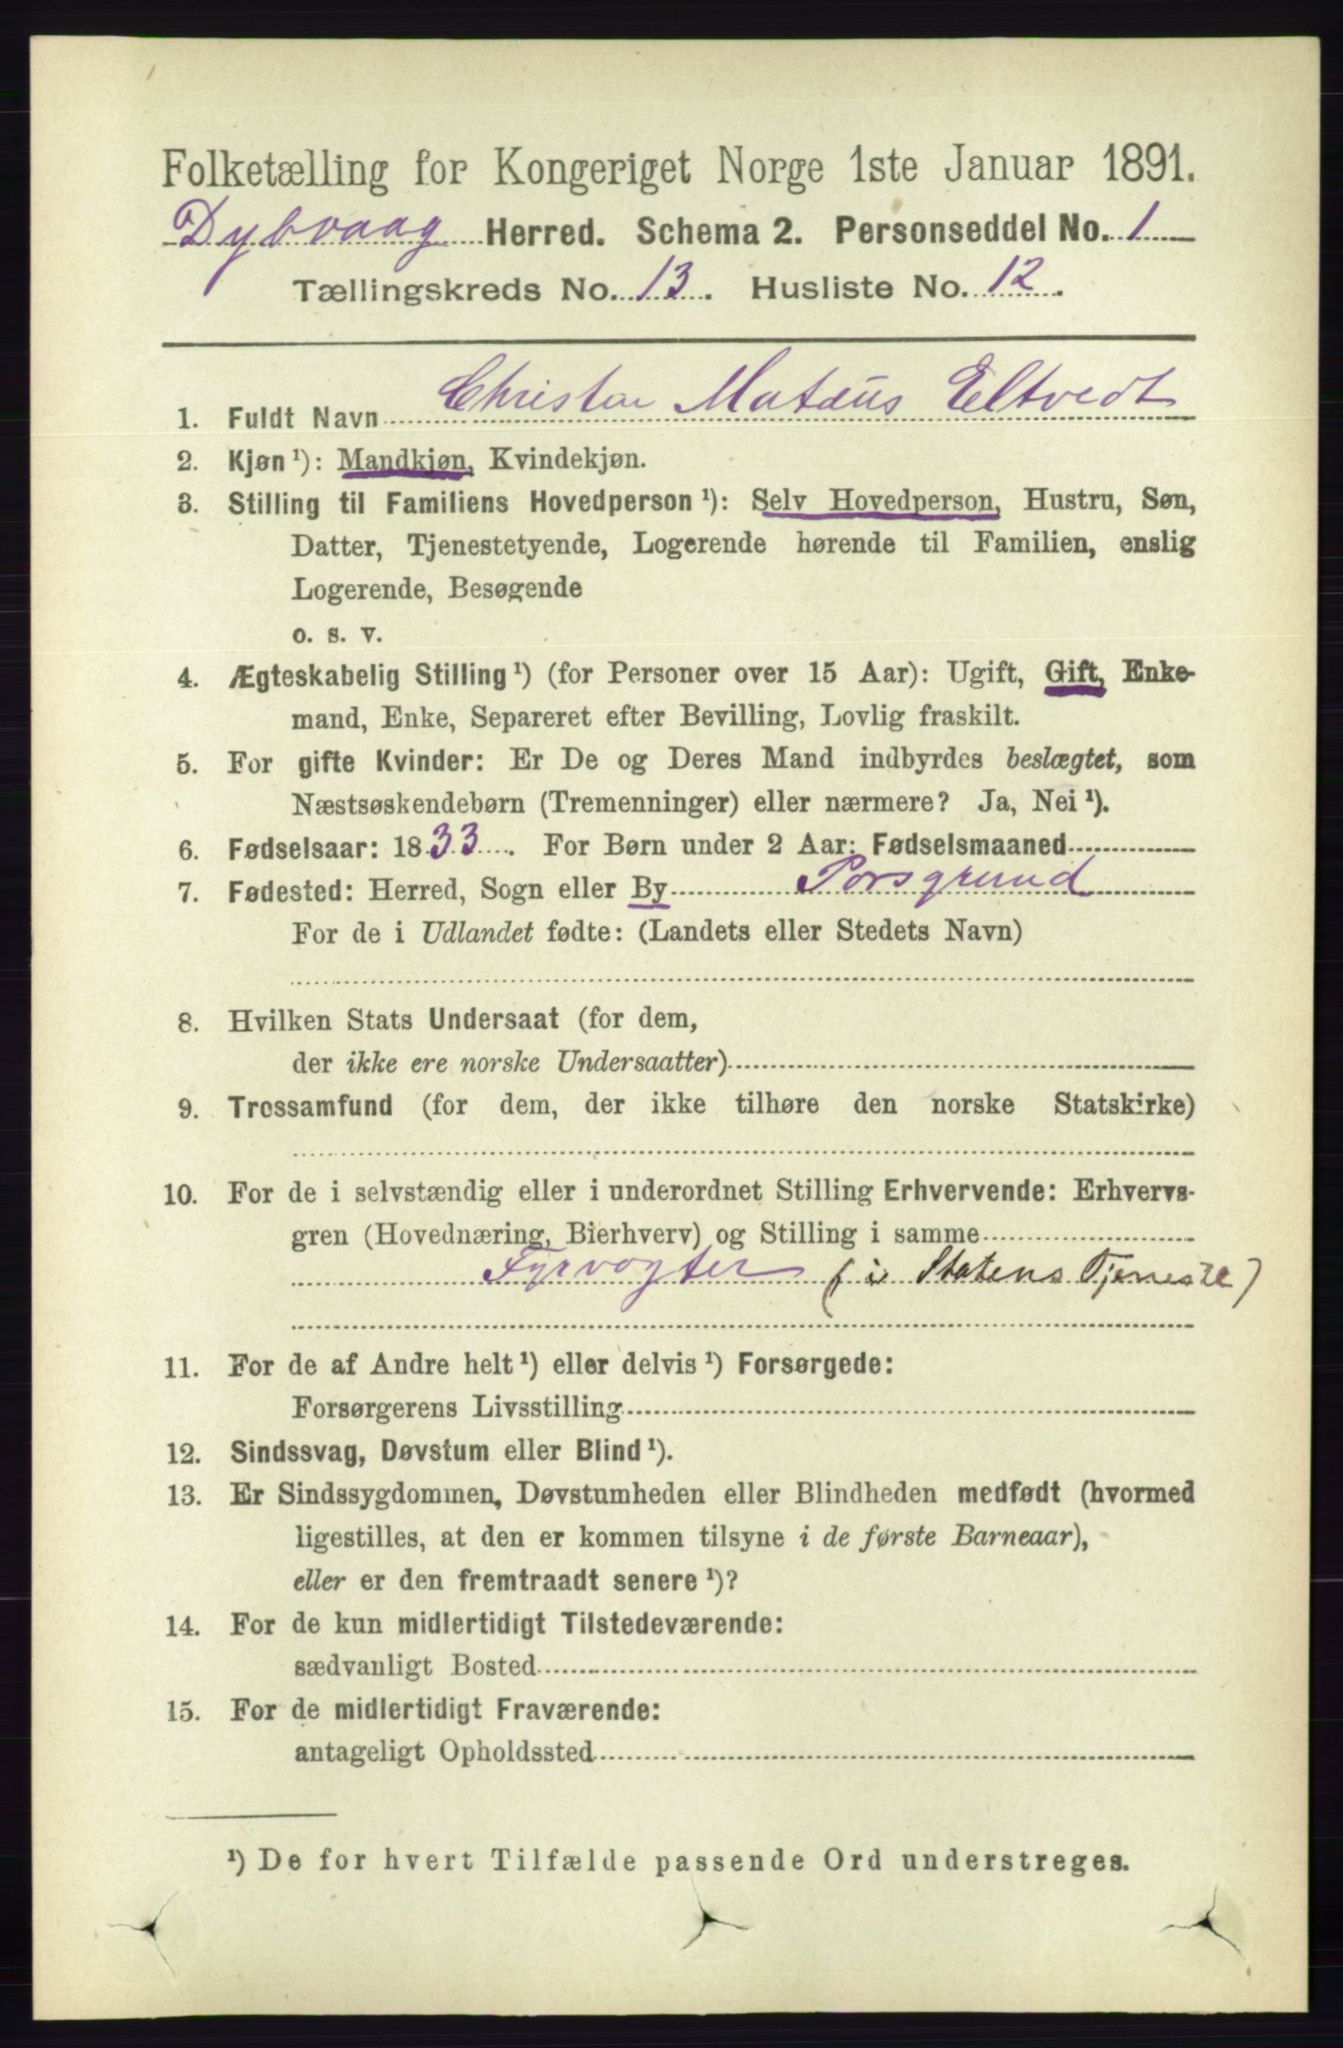 Folketælling for Kongeriget Norge 1ste Januar 1891.
Dybvaag Herred. Schema 2. Personseddel No. 1
Tællingskreds No. 13. Husliste No. 12.
1. Fuldt Navn Christen Matæus Eltvedt
2. Kjøn ¹): Mandkjøn, Kvindekjøn.
3. Stilling til Familiens Hovedperson ¹): Selv Hovedperson, Hustru, Søn,
Datter, Tjenestetyende, Logerende hørende til Familien, enslig
Logerende, Besøgende
o. s. v.
4. Ægteskabelig Stilling ¹) (for Personer over 15 Aar): Ugift, Gift, Enke-
mand, Enke, Separeret efter Bevilling, Lovlig fraskilt.
5. For gifte Kvinder: Er De og Deres Mand indbyrdes beslægtet, som
Næstsøskendebørn (Tremenninger) eller nærmere? Ja, Nei ¹).
6. Fødselsaar: 1833. For Børn under 2 Aar: Fødselsmaaned
7. Fødested: Herred, Sogn eller By Porsgrund
For de i Udlandet fødte: (Landets eller Stedets Navn)
8. Hvilken Stats Undersaat (for dem,
der ikke ere norske Undersaatter)
9. Trossamfund (for dem, der ikke tilhøre den norske Statskirke)
10. For de i selvstændig eller i underordnet Stilling Erhvervende: Erhvervs-
gren (Hovednæring, Bierhverv) og Stilling i samme
Fyrvogter (i Statens Tjeneste)
11. For de af Andre helt ¹) eller delvis ¹) Forsørgede:
Forsørgerens Livsstilling
12. Sindssvag, Døvstum eller Blind ¹).
13. Er Sindssygdommen, Døvstumheden eller Blindheden medfødt (hvormed
ligestilles, at den er kommen tilsyne i de første Barneaar),
eller er den fremtraadt senere ¹)?
14. For de kun midlertidigt Tilstedeværende:
sædvanligt Bosted
15. For de midlertidigt Fraværende:
antageligt Opholdssted
¹) De for hvert Tilfælde passende Ord understreges.